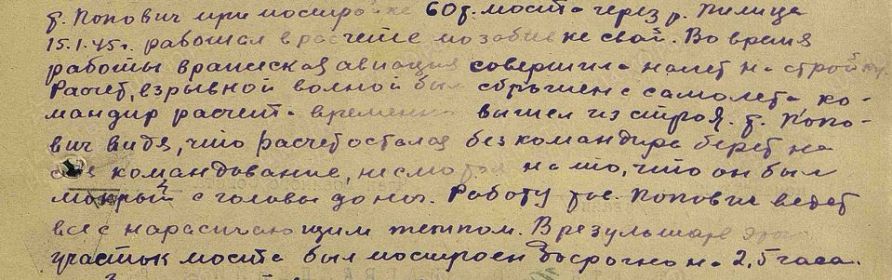 т. Попович при постройке 60т. моста через р. Пилица
15.1.45г. работал в расчете по забивке свай. Во время
работы вражеская авиация совершила налет на стройку.
Расчет, взрывной волной был сброшен с самолета ко-
мандир расчета временно вышел из строя. т. Попо-
вич видя, что расчет остался без командира берет на
себя командование, несмотря на то, что он был
мокрый с головы до ног. Работу тов. Попович ведет
все с нарастающим темпом. В результате этого
участок моста был построен досрочно на 2,5 часа.